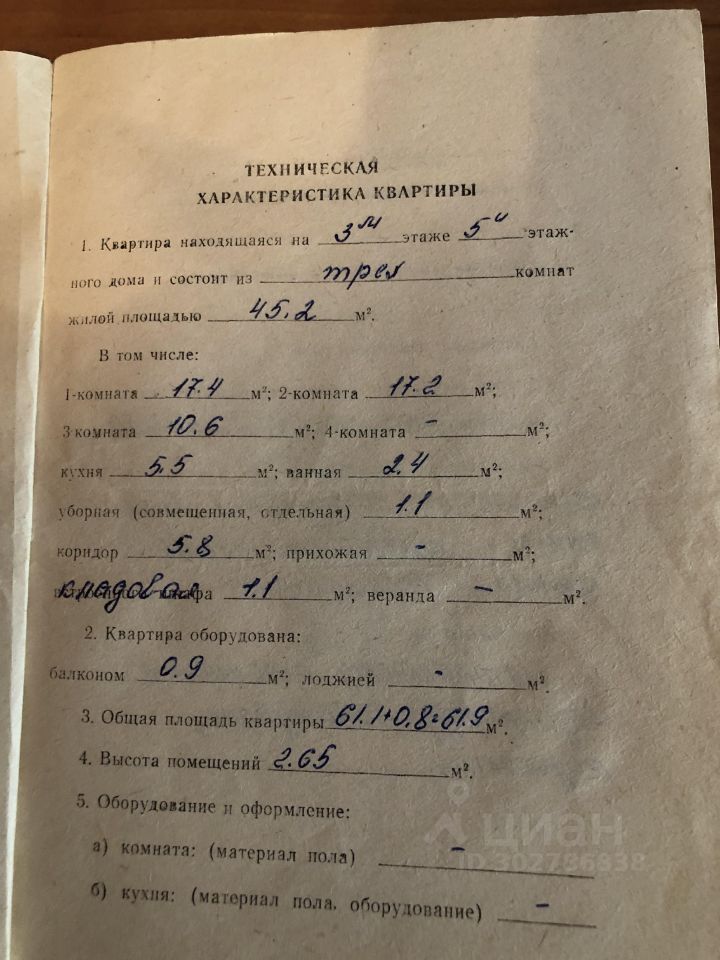 ТЕХНИЧЕСКАЯ
ХАРАКТЕРИСТИКА КВАРТИРЫ
1. Квартира находящаяся на 3м этаже 5и этаж-
ного дома и состоит из трех комнат
жилой площадью 45.2 м².
В том числе:
1-комната 17.4 м²; 2-комната 17.2 м²;
3-комната 10.6 м²; 4-комната - м²;
кухня 5.5 м²; ванная 2.4 м²;
уборная (совмещенная, отдельная) 1.1 м²;
коридор 5.8 м²; прихожая - м²;
кладовая шкафа 1.1 м²; веранда - м².
2. Квартира оборудована:
балконом 0.9 м²; лоджией - м².
3. Общая площадь квартиры 61.1+0.8=61.9 м².
4. Высота помещений 2.65 м².
5. Оборудование и оформление:
а) комната: (материал пола) -
циан
ID 302736838
б) кухня: (материал пола, оборудование) -